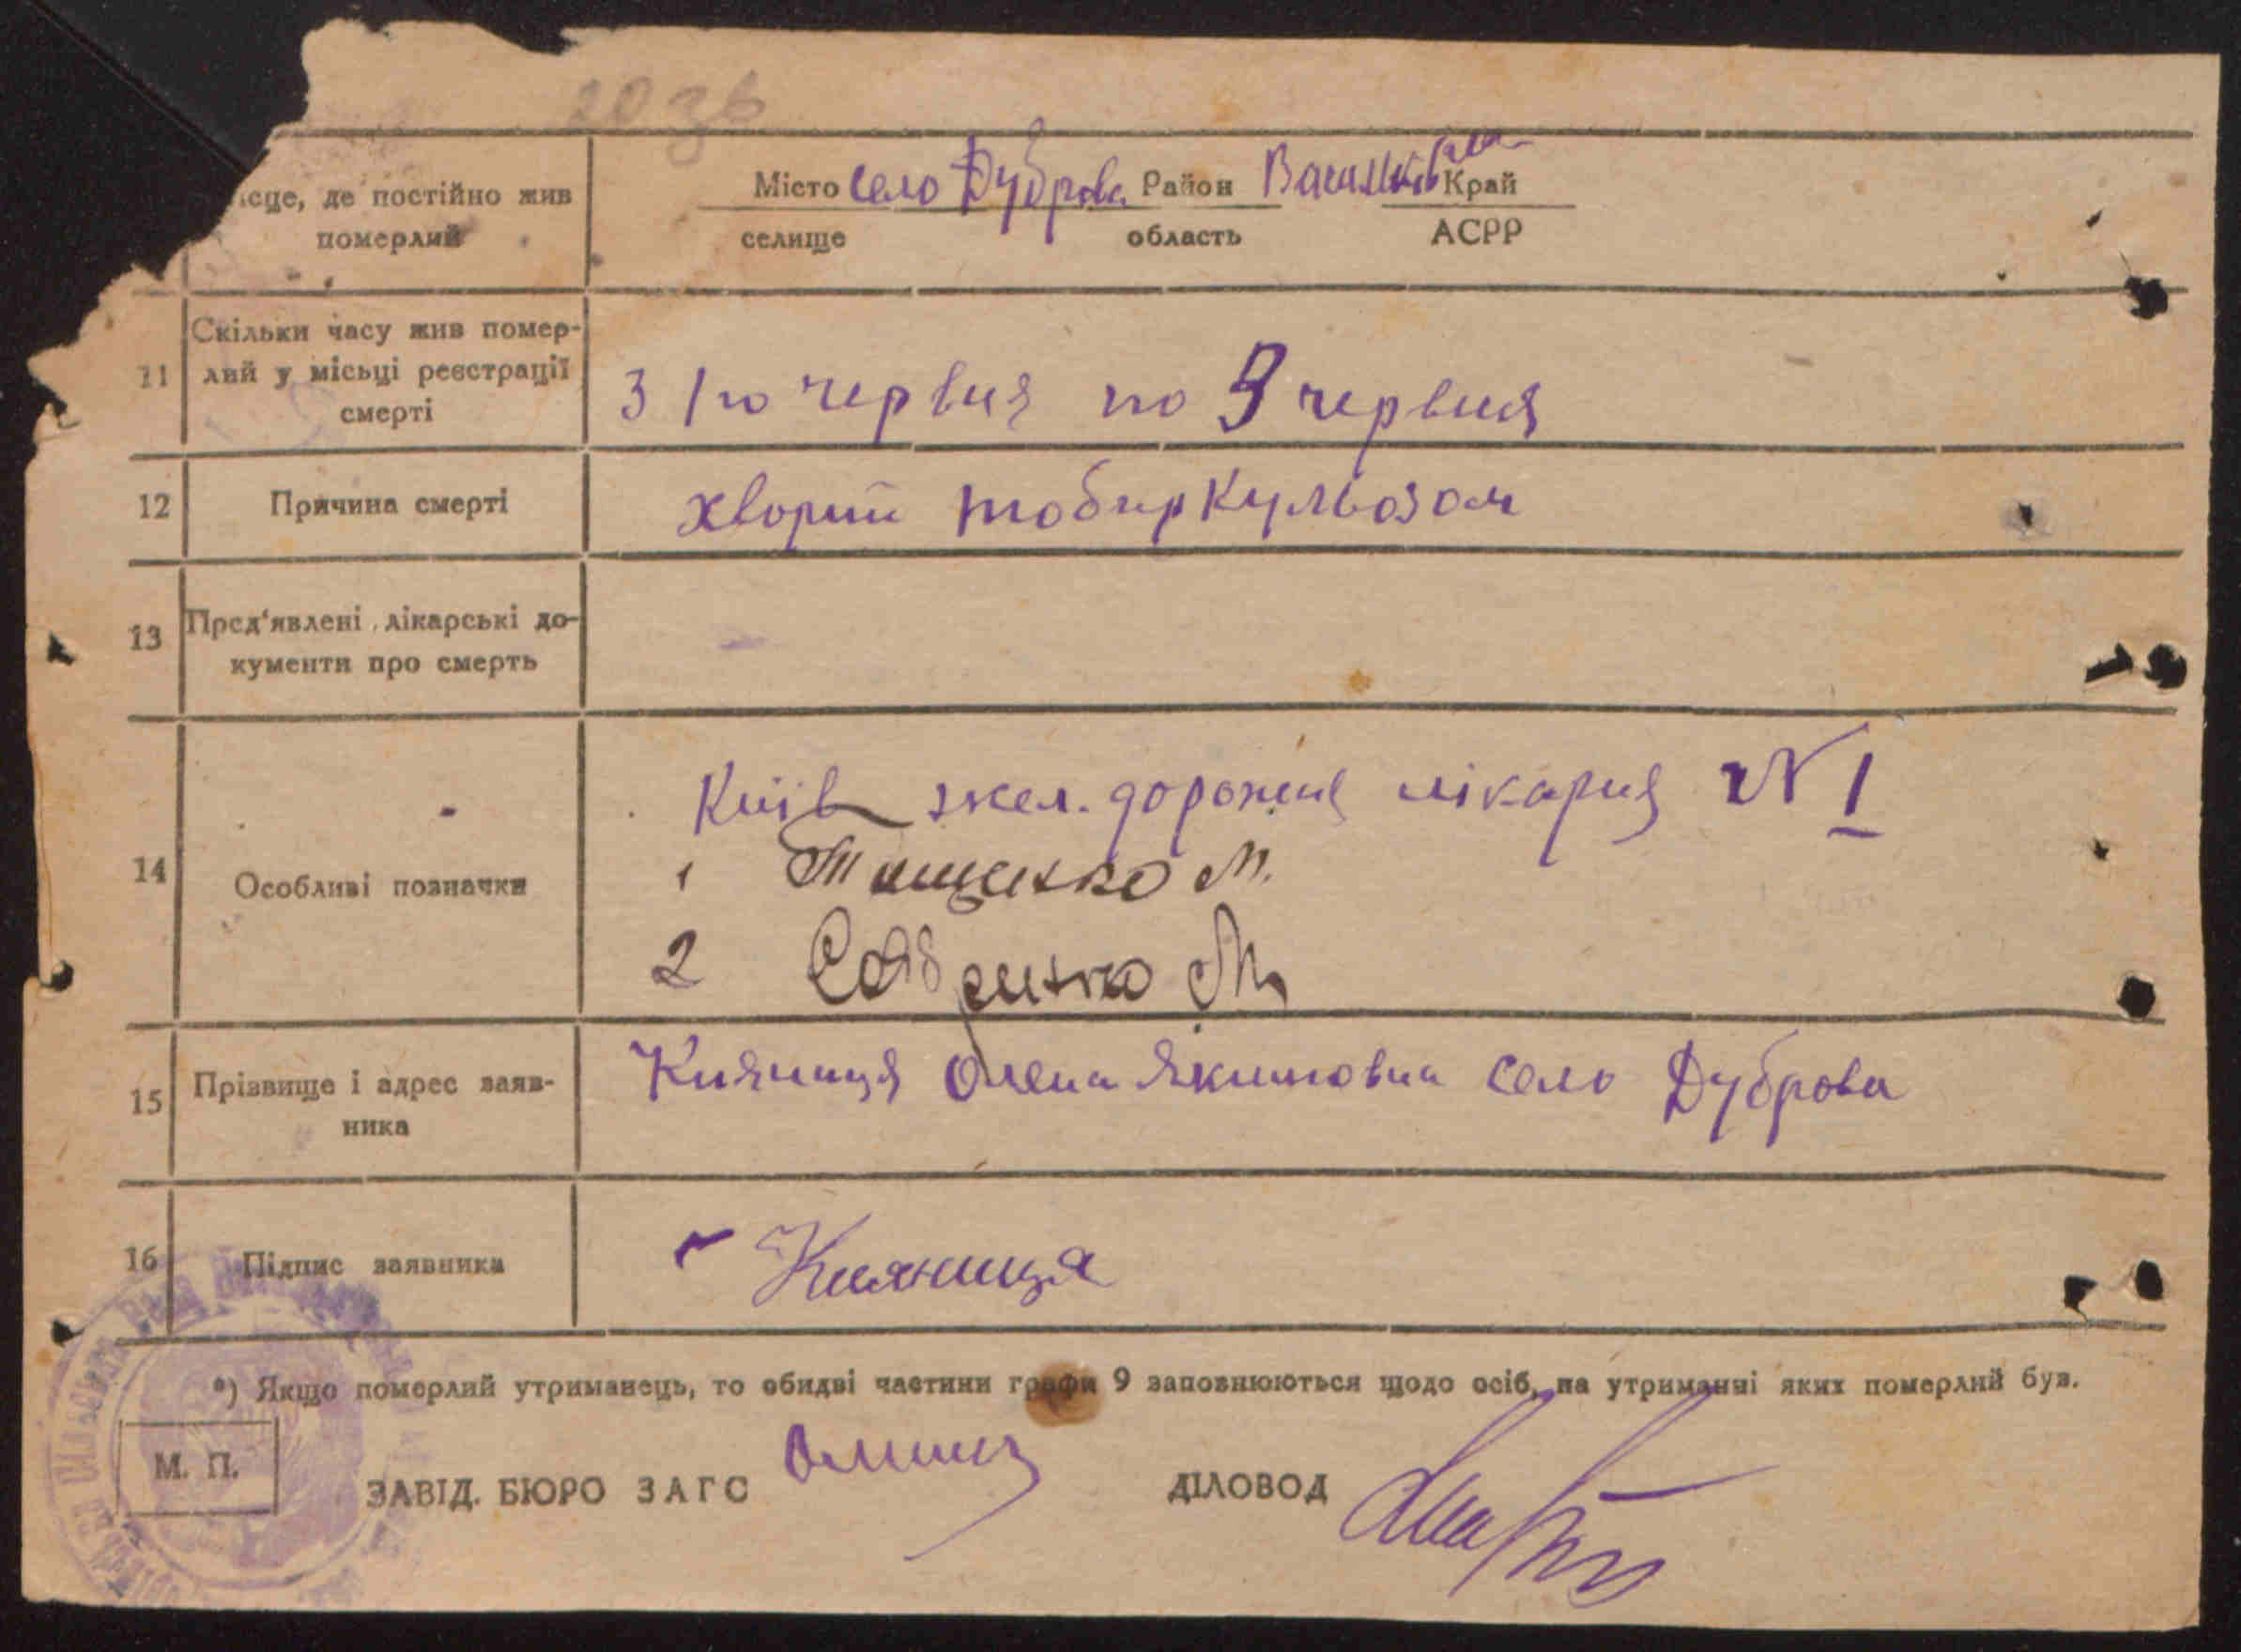 20 зв
ісце, де постійно жив
померлий
Місто село Дуброва Район Васильків Край
селище область АСРР
11
Скільки часу жив помер-
лий у місьці реєстрації
смерті
З 1го червня по 9 червня
12 Причина смерті хворий тобиркульозом
13
Пред'явлені лікарські до-
кументи про смерть
14 Особливі позначки
Київ жел. дорожня лікарня № 1
1 Тищенко М.
2 Савренко М.
15
Прізвище і адрес заяв-
ника
Кияниця Олена Якимовна село Дуброва
16 Підпис заявника Кияниця
*) Якщо померлий утриманець, то обидві частини графи 9 заповнюються щодо осіб, на утриманні яких померлий був.
М. П.
ЗАВІД. БЮРО ЗАГС ДІЛОВОД